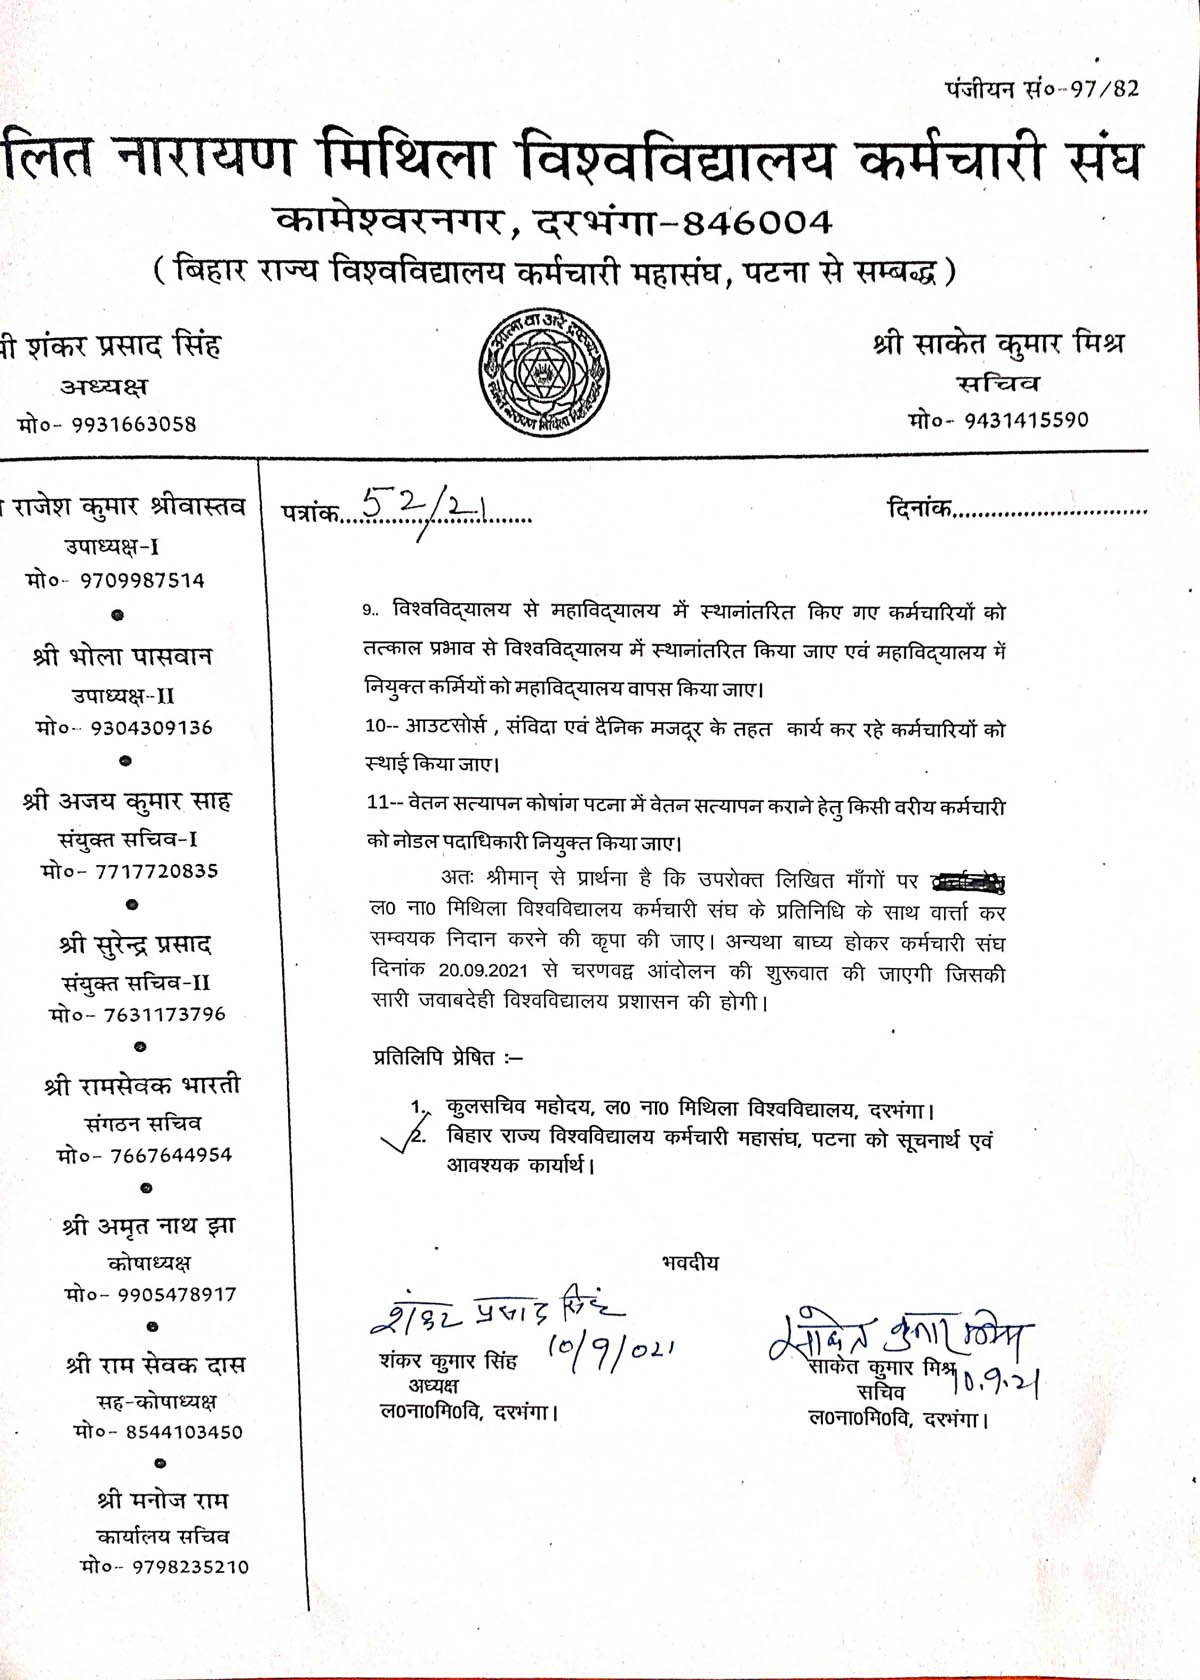 पंजीयन सं०-97/82
लित नारायण मिथिला विश्वविद्यालय कर्मचारी संघ
कामेश्वरनगर, दरभंगा-846004
( बिहार राज्य विश्वविद्यालय कर्मचारी महासंघ, पटना से सम्बद्ध )
ी शंकर प्रसाद सिंह
अध्यक्ष
मो०- 9931663058
श्री साकेत कुमार मिश्र
सचिव
मो०- 9431415590
राजेश कुमार श्रीवास्तव
उपाध्यक्ष-I
मो०- 9709987514
श्री भोला पासवान
उपाध्यक्ष-II
मो०- 9304309136
श्री अजय कुमार साह
संयुक्त सचिव-I
मो०- 7717720835
श्री सुरेन्द्र प्रसाद
संयुक्त सचिव-II
मो०- 7631173796
श्री रामसेवक भारती
संगठन सचिव
मो०- 7667644954
श्री अमृत नाथ झा
कोषाध्यक्ष
मो०- 9905478917
श्री राम सेवक दास
सह-कोषाध्यक्ष
मो०- 8544103450
श्री मनोज राम
कार्यालय सचिव
मो०- 9798235210
पत्रांक...52/21...
दिनांक...............................
9.. विश्वविद्यालय से महाविद्यालय में स्थानांतरित किए गए कर्मचारियों को
तत्काल प्रभाव से विश्वविद्यालय में स्थानांतरित किया जाए एवं महाविद्यालय में
नियुक्त कर्मियों को महाविद्यालय वापस किया जाए।
10-- आउटसोर्स , संविदा एवं दैनिक मजदूर के तहत कार्य कर रहे कर्मचारियों को
स्थाई किया जाए।
11-- वेतन सत्यापन कोषांग पटना में वेतन सत्यापन कराने हेतु किसी वरीय कर्मचारी
को नोडल पदाधिकारी नियुक्त किया जाए।
अतः श्रीमान् से प्रार्थना है कि उपरोक्त लिखित माँगों पर
ल0 ना0 मिथिला विश्वविद्यालय कर्मचारी संघ के प्रतिनिधि के साथ वार्त्ता कर
सम्वयक निदान करने की कृपा की जाए। अन्यथा बाघ्य होकर कर्मचारी संघ
दिनांक 20.09.2021 से चरणवद्व आंदोलन की शुरूवात की जाएगी जिसकी
सारी जवाबदेही विश्वविद्यालय प्रशासन की होगी।
प्रतिलिपि प्रेषित :–
1. कुलसचिव महोदय, ल0 ना0 मिथिला विश्वविद्यालय, दरभंगा।
2. बिहार राज्य विश्वविद्यालय कर्मचारी महासंघ, पटना को सूचनार्थ एवं
आवश्यक कार्यार्थ।
भवदीय
शंकर प्रसाद सिंह
10/9/021
शंकर कुमार सिंह
अध्यक्ष
ल0ना0मि0वि, दरभंगा।
साकेत कुमार मिश्र
साकेत कुमार मिश्र
10.9.21
सचिव
ल0ना0मि0वि, दरभंगा।